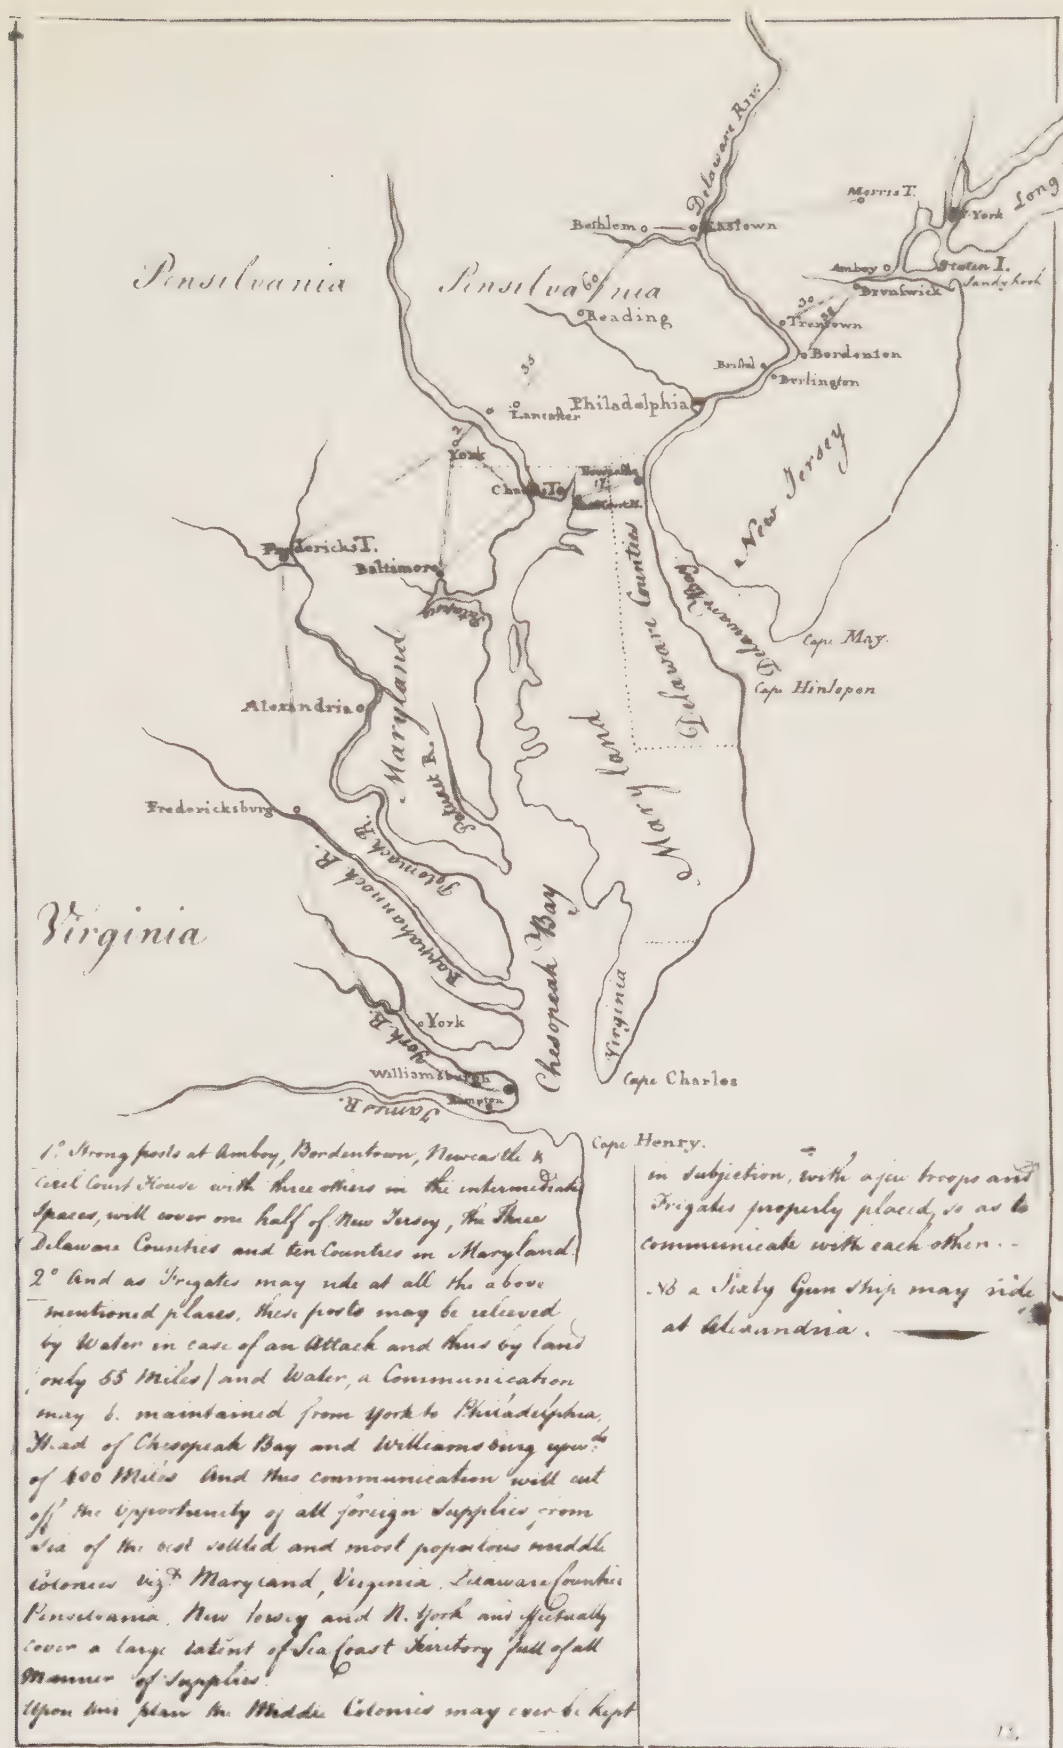 Delaware Riv.
Morris T.
York
Long
Bethlem
Eastown
Amboy
Staten I.
Sandy hook
Brunswick
Pensilvania
Pensilvania
60
Reading
30
Trentown
Bordenton
Bristol
Burlington
35
Lancaster
Philadelphia
New Jersey
York
Charles T.
17
Fredericks T.
Baltimore
Patapsco
Delaware Counties
Delaware Bay
Cape May.
Cape Hinlopen
Alexandria
Maryland
Patuxt R.
Maryland
Fredericksburg
Potomack R.
Rappahannock R.
Virginia
Chesopeak Bay
Virginia
York
York R.
Williamsburgh
Hampton
James R.
Cape Charles
Cape Henry.
1º. Strong posts at Amboy, Bordentown, Newcastle &
Cecil Court House with three others in the intermediate
Spaces, will cover one half of New Jersey, the Three
Delaware Counties and ten Counties in Maryland.
2º And as Frigates may ride at all the above
mentioned places, these posts may be releived
by Water in case of an Attack and thus by land
(only 55 Miles) and Water, a Communication
may be maintained from York to Philadelphia,
Head of Chesopeak Bay and Williamsburg upwds.
of 600 Miles And this communication will cut
off the opportunity of all foreign Supplies from
Sea of the best settled and most populous middle
Colonies vizt. Maryland, Virginia, Delaware Counties
Pensilvania, New Jersey and N. York and effectually
cover a large extent of Sea Coast Territory full of all
Manner of Supplies.
Upon this plan the Middle Colonies may ever be kept
in subjection, with a few troops and
Frigates properly placed, so as to
communicate with each other. --
NB a Sixty Gun ship may ride
at Alexandria.